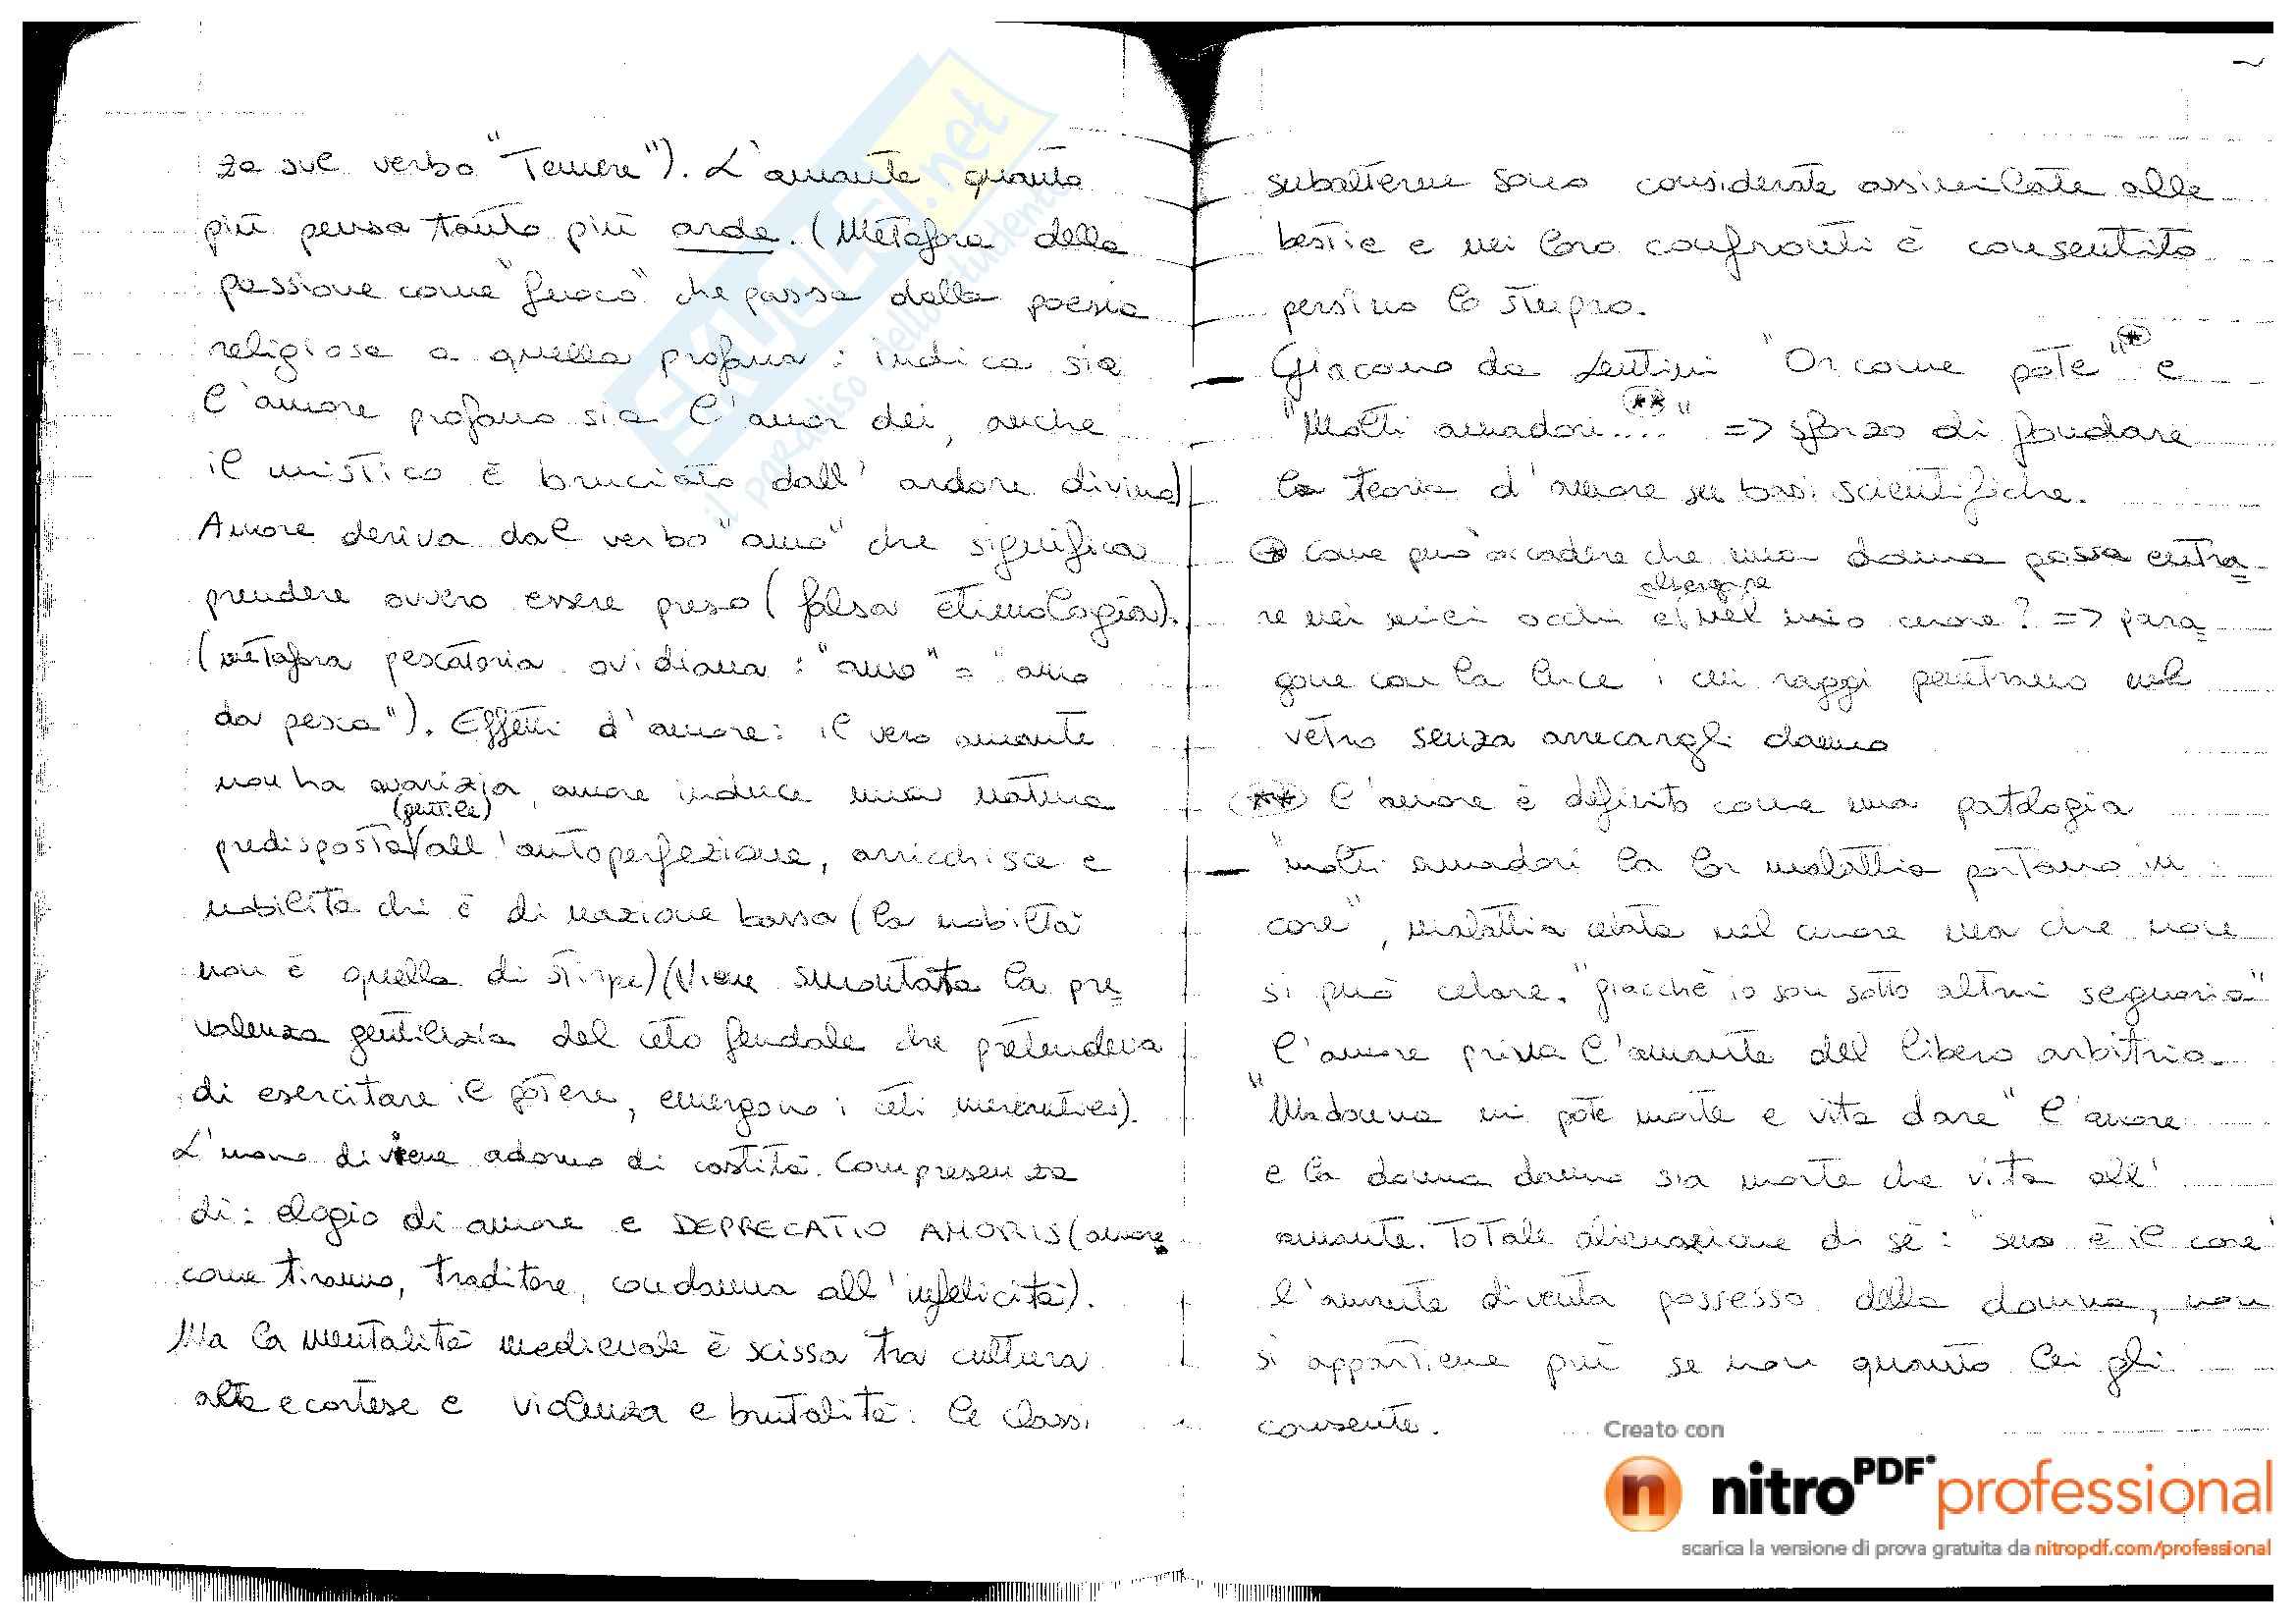 za sul verbo "Temere"). L'amante quanto
più pensa tanto più arde. (Metafora della
passione come "fuoco" che passa dalla poesia
religiosa a quella profana: indica sia
l'amore profano sia l'amor dei, anche
il mistico è bruciato dall'ardore divino)
Amore deriva dal verbo "amo" che significa
prendere ovvero essere preso (falsa etimologia).
(metafora pescatoria ovidiana: "amo" = "amo
da pesca"). Effetti d'amore: il vero amante
non ha avarizia, amore induce una natura
(gentile)
predisposta all'autoperfezione, arricchisce e
nobilita chi è di nazione bassa (la nobiltà
non è quella di stirpe) (Viene smontata la pre=
valenza gentilizia del ceto feudale che pretendeva
di esercitare il potere, emergono i ceti mercantili).
L'uomo diviene adorno di castità. Compresenza
di: elogio di amore e DEPRECATIO AMORIS (amore
come tiranno, traditore, condanna all'infelicità).
Ma la mentalità medievale è scissa tra cultura
alta e cortese e violenza e brutalità: le classi
subalterne sono considerate assimilate alle
bestie e nei loro confronti è consentito
persino lo stupro.
- Giacomo da Lentini "Or come pote" * e
"Molti amadori...." ** => sforzo di fondare
la teoria d'amore su basi scientifiche.
* Come può accadere che una donna possa entra=
albergare
re nei miei occhi e nel mio cuore? => para=
gone con la luce i cui raggi penetrano nel
vetro senza arrecargli danno
** L'amore è definito come una patologia
- "molti amadori la lor malattia portano in
core", malattia celata nel cuore ma che non
si può celare. "giacchè io son sotto altrui segnoria"
l'amore priva l'amante del libero arbitrio.
"Madonna mi pote morte e vita dare" l'amore
e la donna danno sia morte che vita all'
amante. Totale alienazione di sè: "suo è il core"
l'amante diventa possesso della donna, non
si appartiene più se non quanto lei gli
consente.
Creato con
nitroPDF professional
scarica la versione di prova gratuita da nitropdf.com/professional
SKUOLA.net
il paradiso dello studente